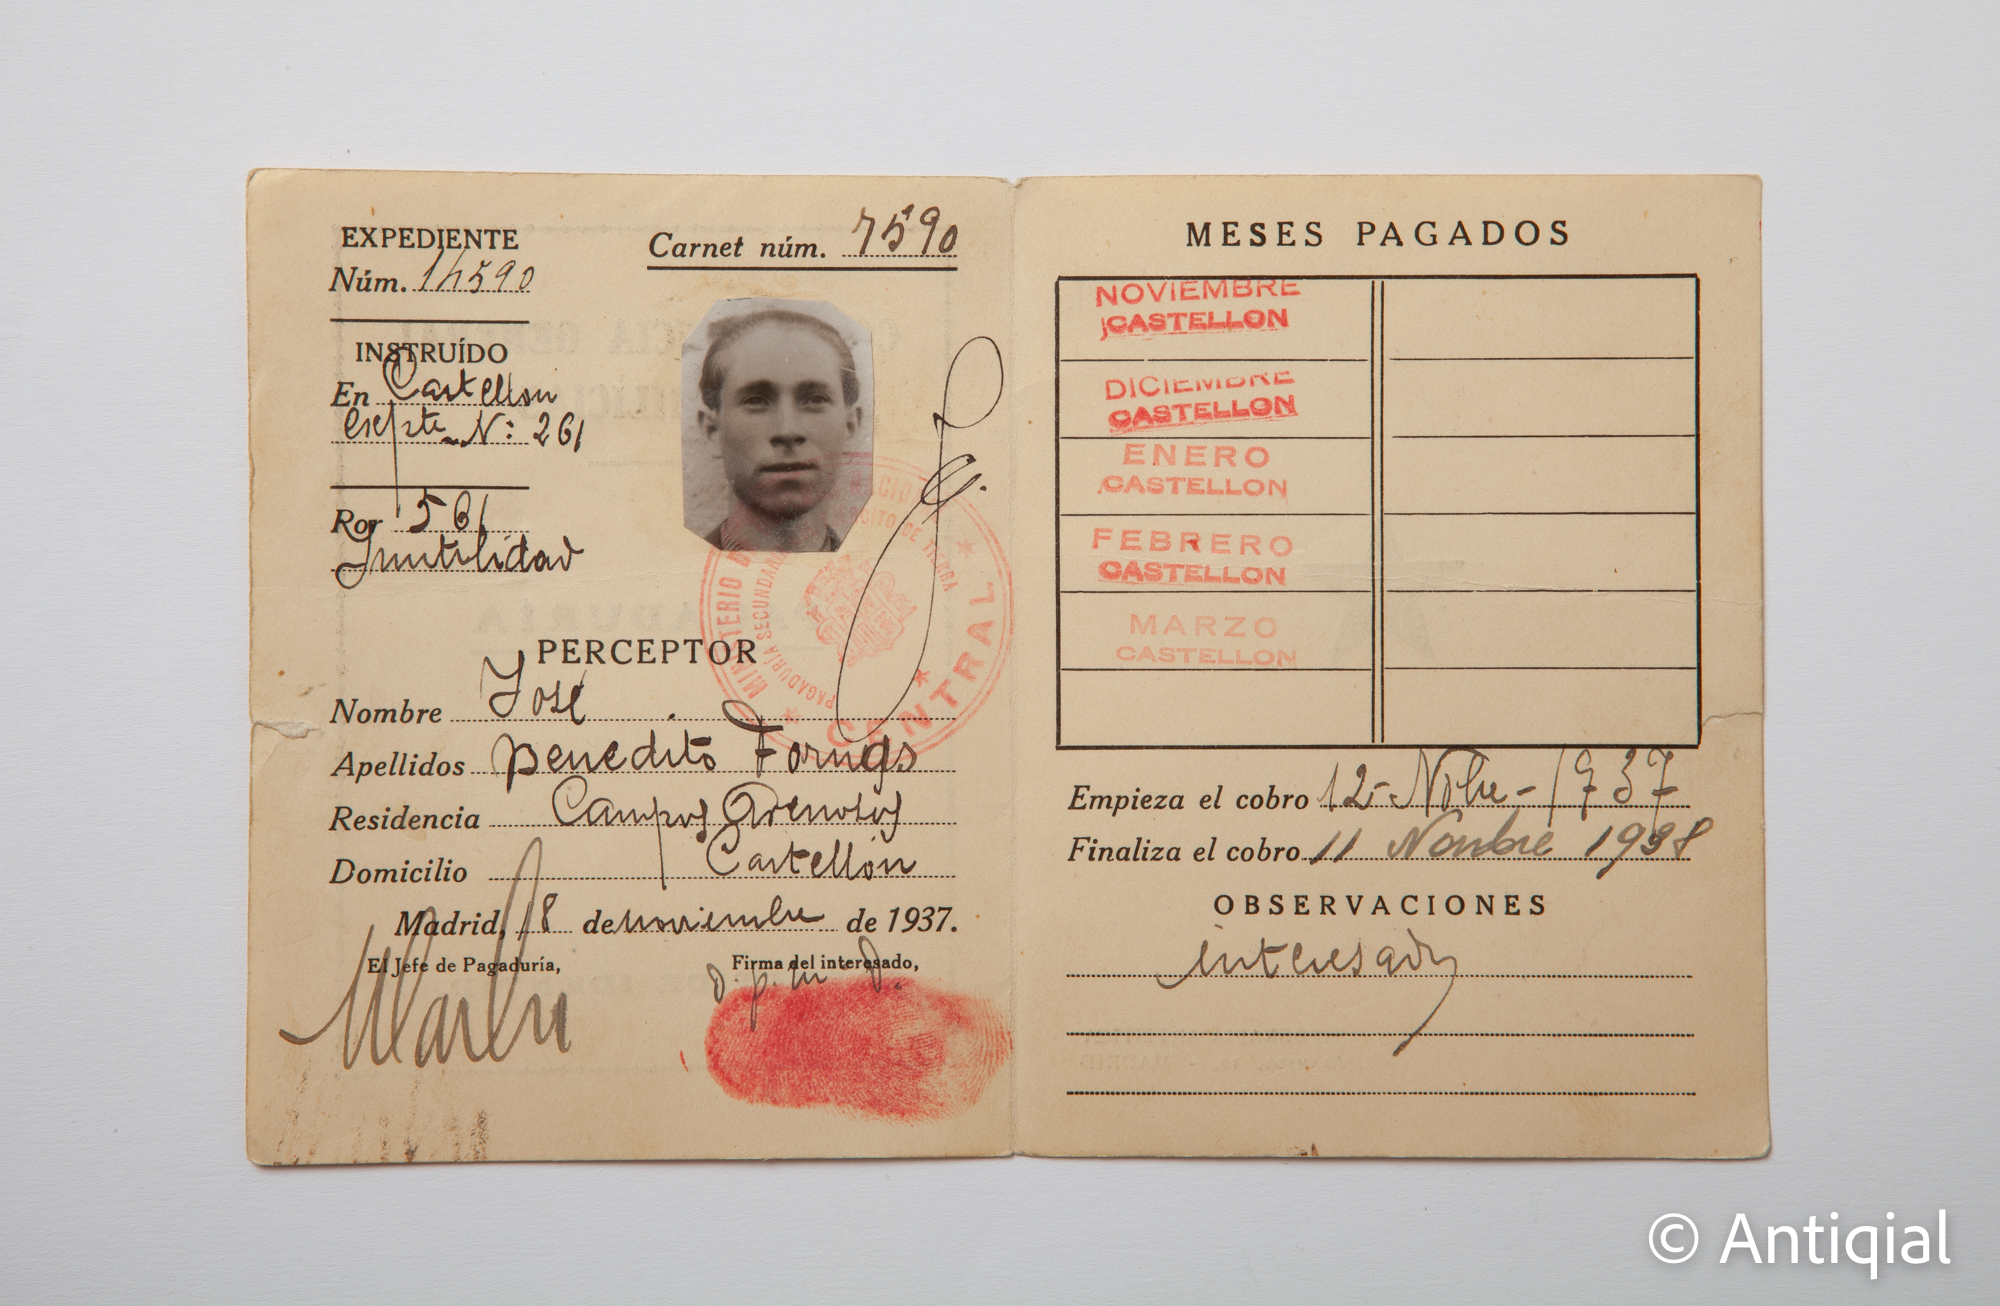 EXPEDIENTE
Núm. 14590
Carnet núm. 7590
INSTRUÍDO
En Castellón
Expte. N: 261
Por 561
Inutilidad
MINISTERIO DE
PAGADURÍA SECUNDARIA EJÉRCITO DE TIERRA
CENTRAL
PERCEPTOR
Nombre José
Apellidos Benedito
Residencia Campos Arenosos
Domicilio Castellón
Madrid, 18 de noviembre de 1937.
El Jefe de Pagaduría,
Firma del interesado,
MESES PAGADOS
NOVIEMBRE
CASTELLON
DICIEMBRE
CASTELLON
ENERO
CASTELLON
FEBRERO
CASTELLON
MARZO
CASTELLON
Empieza el cobro 12-Nbre-1937
Finaliza el cobro 11 Novbre 1938
OBSERVACIONES
interesado
© Antiqial